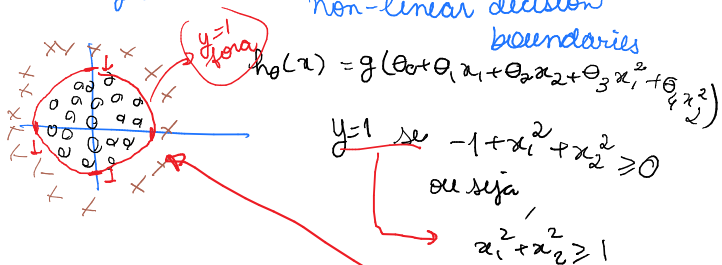 non-linear decision
boundaries
y=1
fora
h_θ(x) = g(θ_0+θ_1x_1+θ_2x_2+θ_3x_1^2+θ_4x_2^2)
y=1 se -1+x_1^2+x_2^2 ≥0
ou seja
x_1^2+x_2^2 ≥ 1